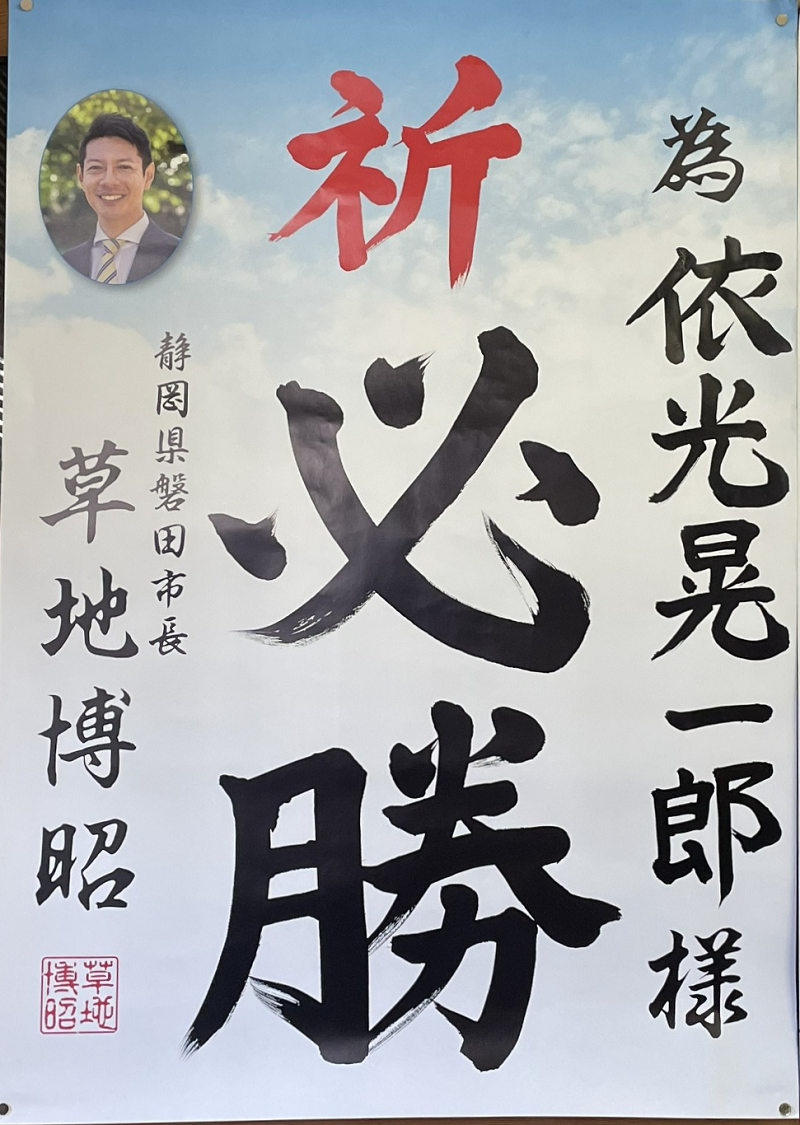 為 依光晃一郎 様
祈
必勝
静岡県磐田市長
草地博昭
草地
博昭